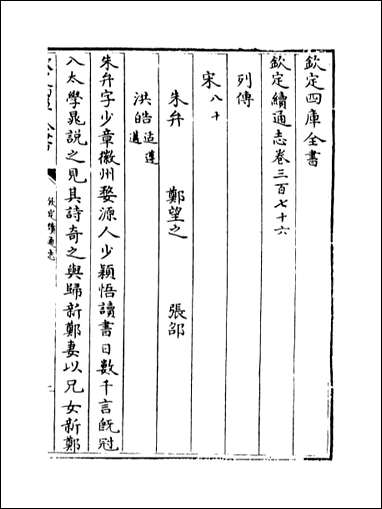 欽定四庫全書
欽定續通志卷三百七十六
列傳
宋 八十
朱弁 鄭望之 張邵
洪皓 适 遵 邁
朱弁字少章徽州婺源人少穎悟讀書日數千言旣冠
入太學晁說之見其詩奇之與歸新鄭妻以兄女新鄭
欽定續通志